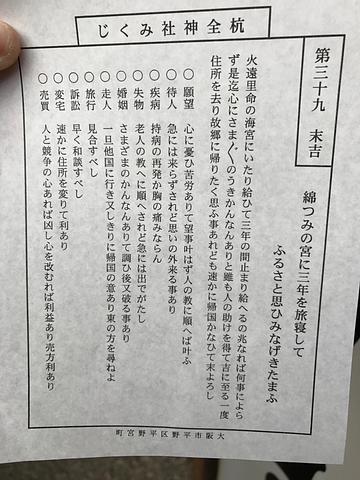 杭全神社みくじ
第三十九　末吉
綿つみの宮に三年を旅寝して
ふるさと思ひみなげきたまふ
火遠里命の海宮にいたり給ひて三年の間止まり給へるの兆なれば何事によら
ず是迄心にさま〴〵のうきかんなんありと雖も人の助けを得て吉に至る一度
住所を去り故郷に帰りたく思ふ事あれども速かに帰国かなひて末よろし
○ 願望　心に憂ひ苦労ありて望事叶はず人の教に順へば叶ふ
○ 待人　急には来らずされど思いの外来る事あり
○ 疾病　持病の再発か胸の痛みならん
○ 失物　老人の教へに順へされど急には出でがたし
○ 婚姻　さまざまのかんなんありて調ひ後又破る事あり
○ 走人　一旦他国に行き又しきりに帰国の意あり東の方を尋ねよ
○ 旅行　見合すべし
○ 訴訟　早く和談すべし
○ 変宅　速かに住所を変りて利あり
○ 売買　人と競争の心あれば凶し心を改むれば利益あり売方利あり
大阪市平野区平野宮町